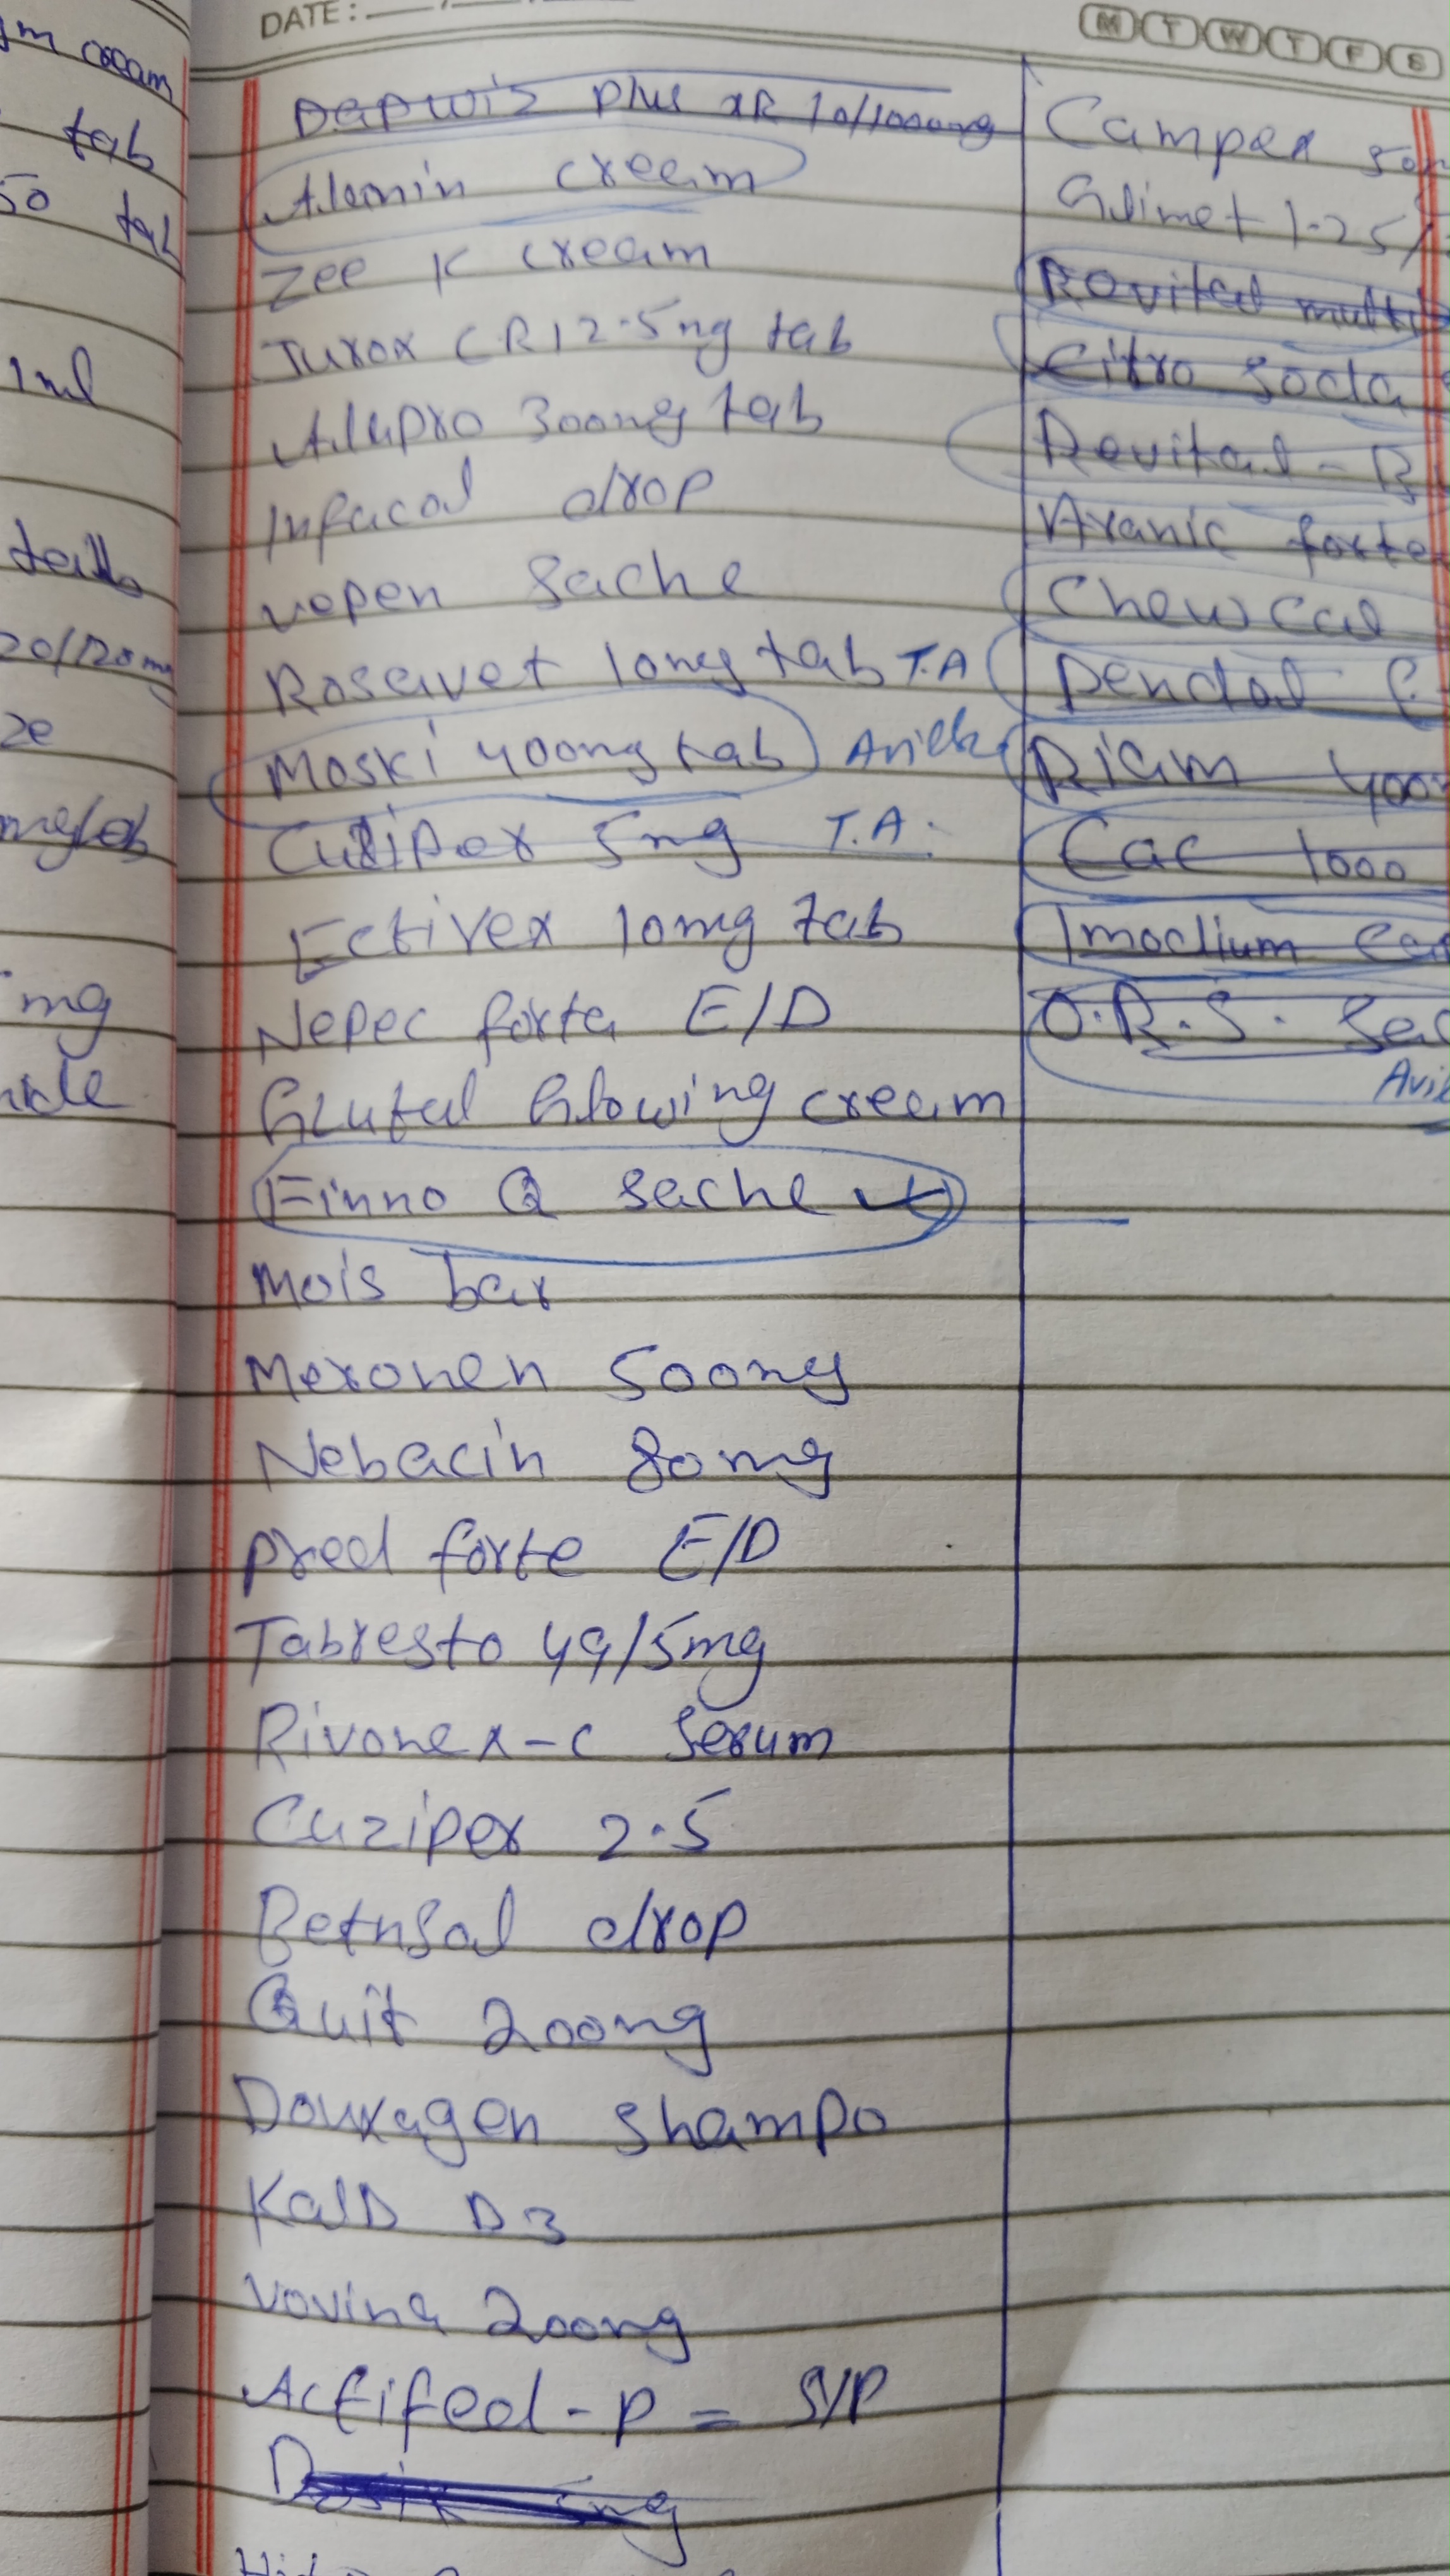 m cream
tab
50 tab
1ml
20/120mg
ze
mg
DATE:
M T W T F S
Dapwiz Plus XR 10/1000mg
Alamin cream
Zee K cream
Turox CR 12.5mg tab
Allupro 300mg tab
Infacol drop
vepen Sache
Rosavet 10mg tab T.A
Moski 400mg tab
Cuziper 5mg T.A.
Ectivex 10mg tab
Nepec forta E/D
Glutal Glowing cream
Finno Q Sache
Mois bar
Meronen 500mg
Nebacin 80mg
Pred forte E/D
Tabresto 49/5mg
Rivonex-C Serum
Cuziper 2.5
Betnsal drop
Quit 200mg
Douxagen Shampo
KalD D3
Vovina 200mg
Actifed-P = SYP
Campex 50m
Glimet 1.25/
Revital multi
Citro Soda
Revital - B
Aranic forte
Chew Cal
Pendol E
Riam 400
Cac 1000
Imodium Ca
O.R.S. Sac